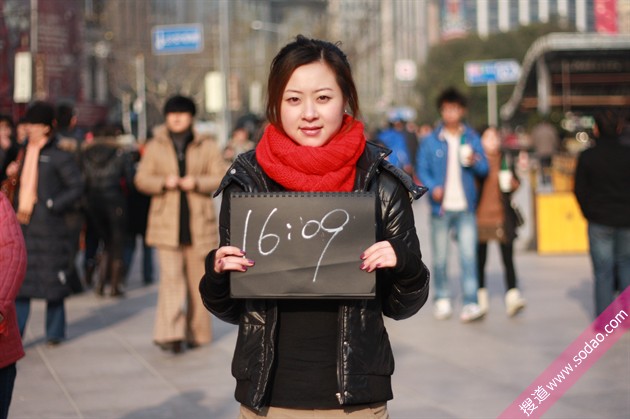 16:09
搜道 www.sodao.com